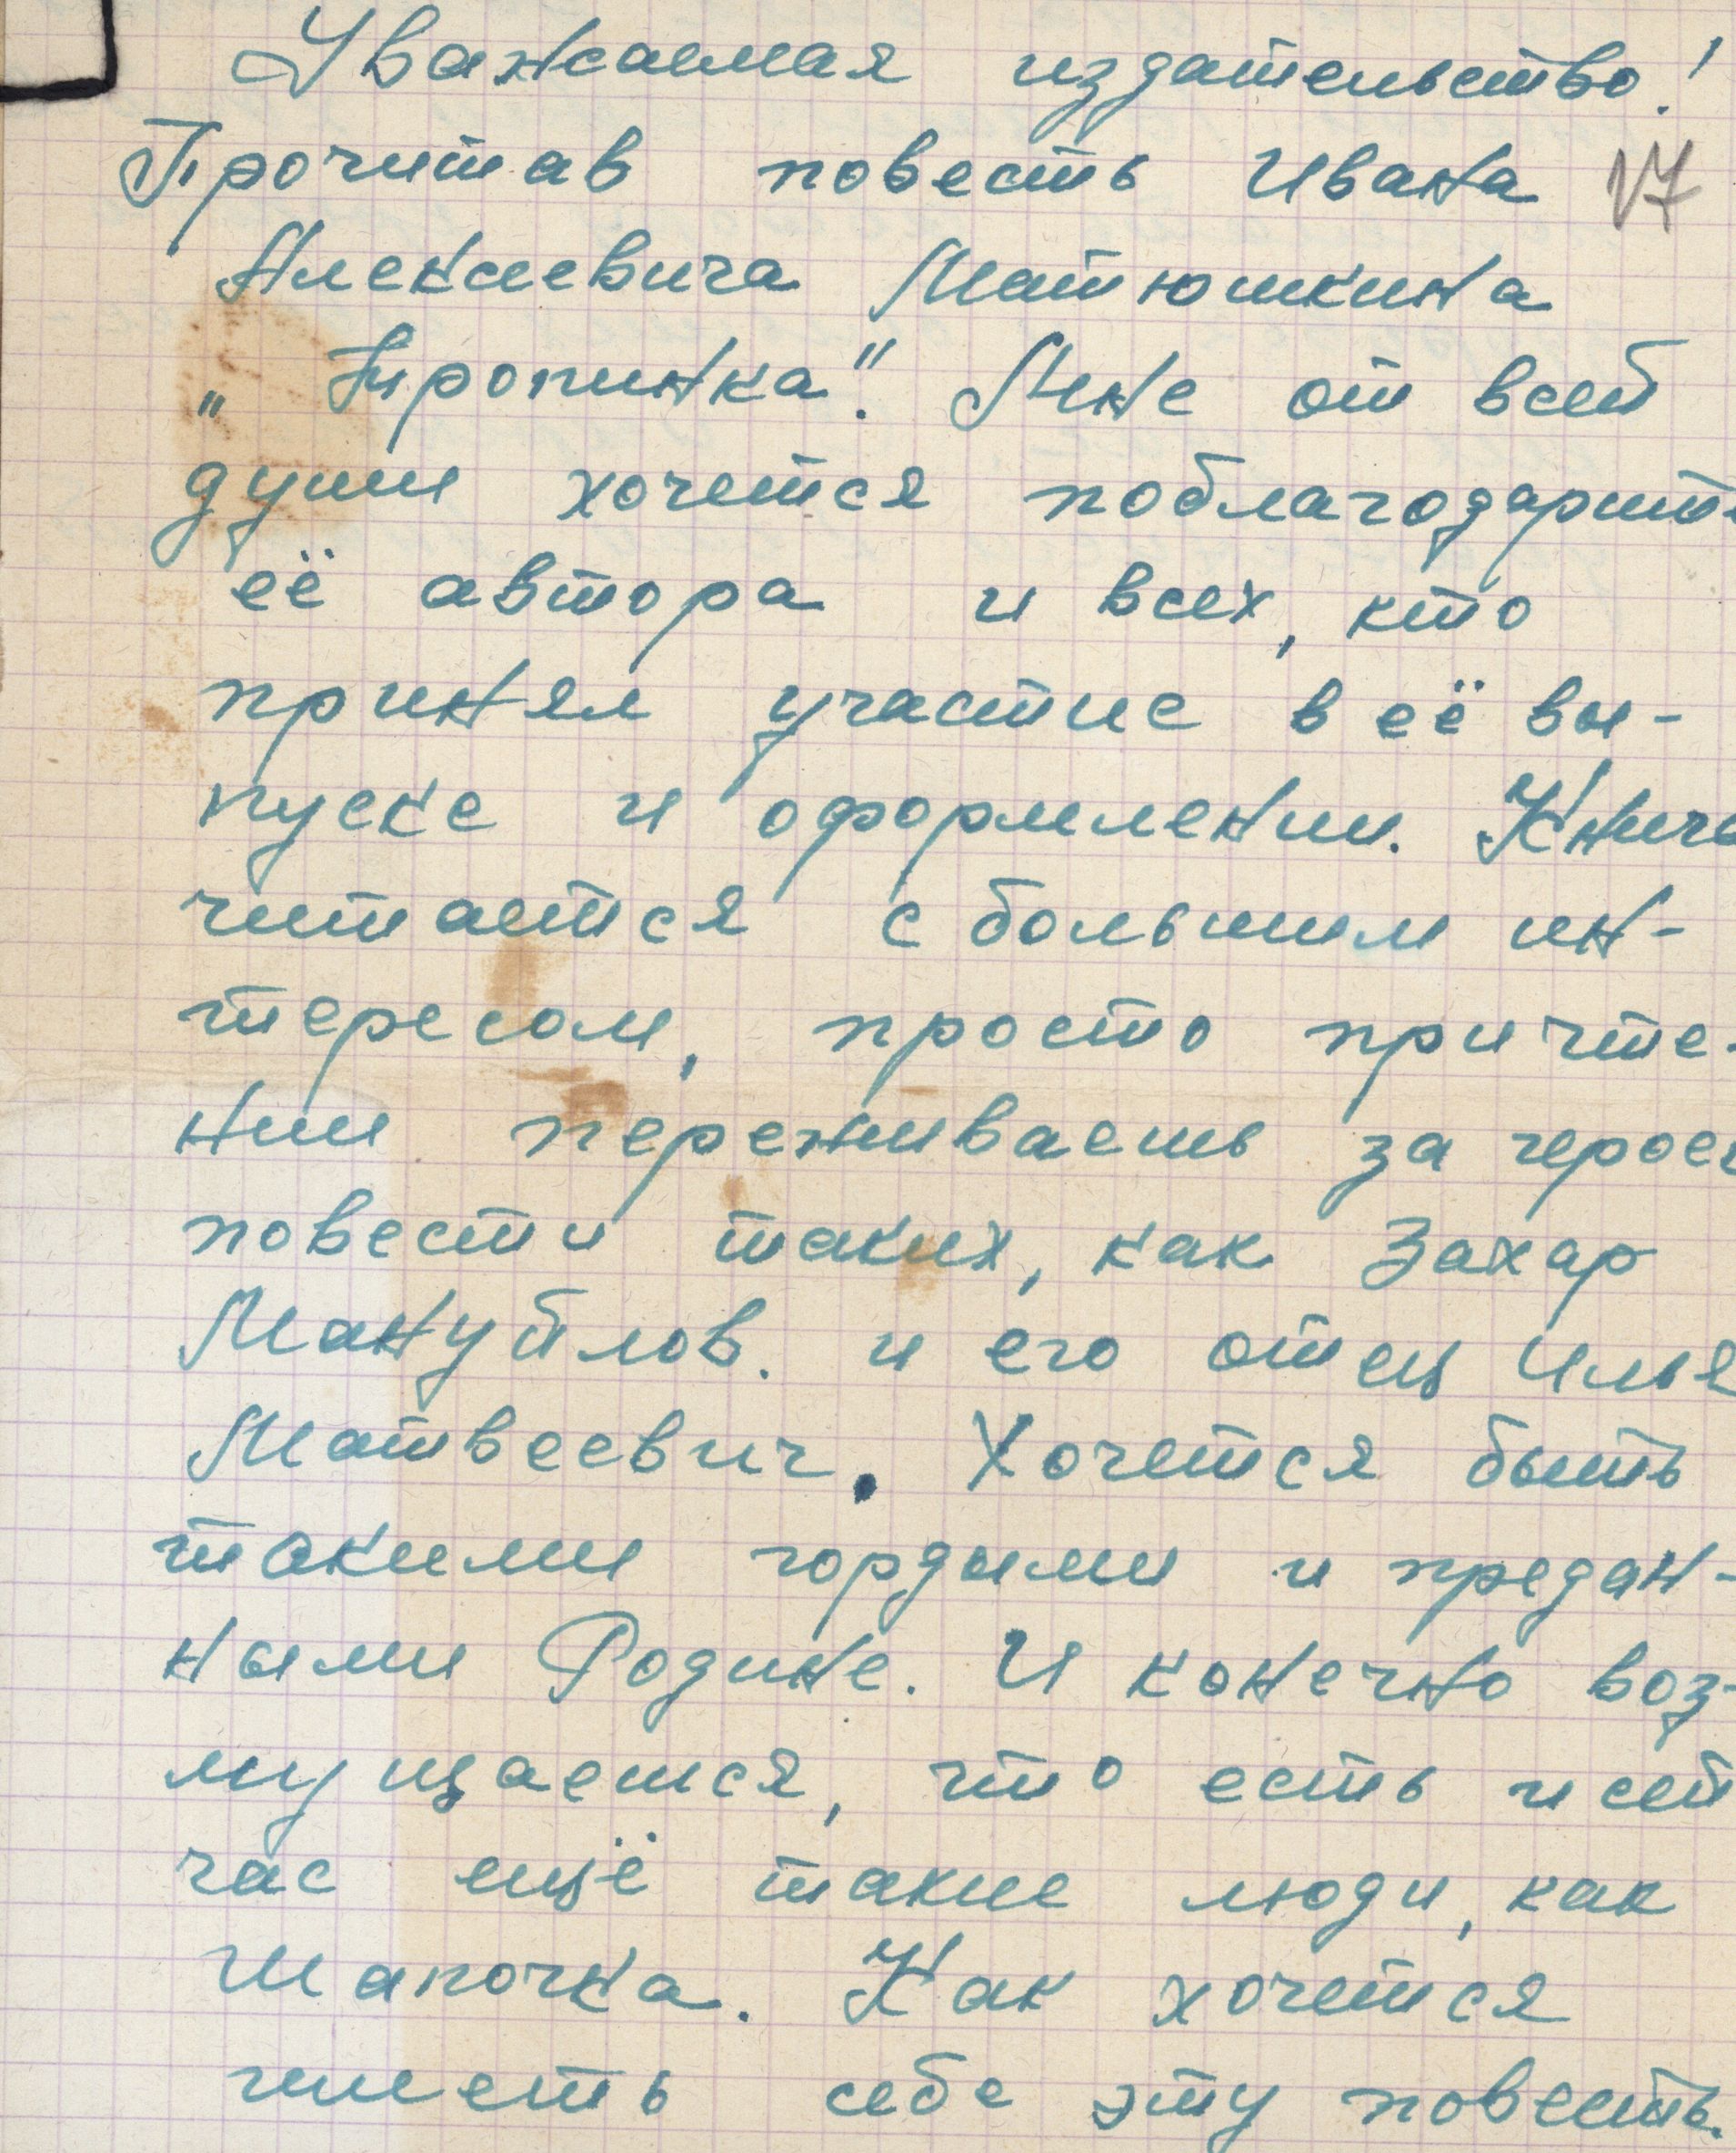 Уважаемая издательство!
Прочитав повесть Ивана 17
Алексеевича Матюшкина
„Тропинка". Мне от всей
души хочется поблагодарить
её автора и всех, кто
принял участие в её вы-
пуске и оформлении. Книга
читается с большим ин-
тересом, просто при чте-
нии переживаешь за героев
повести таких, как Захар
Мануйлов. и его отец Илья
Матвеевич. Хочется быть
такими гордыми и предан-
ными Родине. И конечно воз-
мущаешся, что есть и сей
час ещё такие люди, как
Шапочка. Как хочется
иметь себе эту повесть.